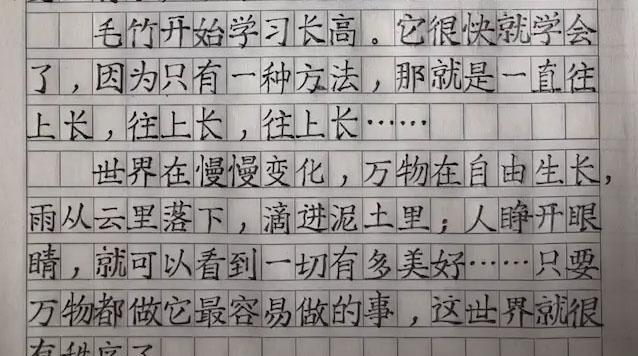 毛竹开始学习长高。它很快就学会
了，因为只有一种方法，那就是一直往
上长，往上长，往上长……
世界在慢慢变化，万物在自由生长，
雨从云里落下，滴进泥土里；人睁开眼
睛，就可以看到一切有多美好……只要
万物都做它最容易做的事，这世界就很
有秩序了